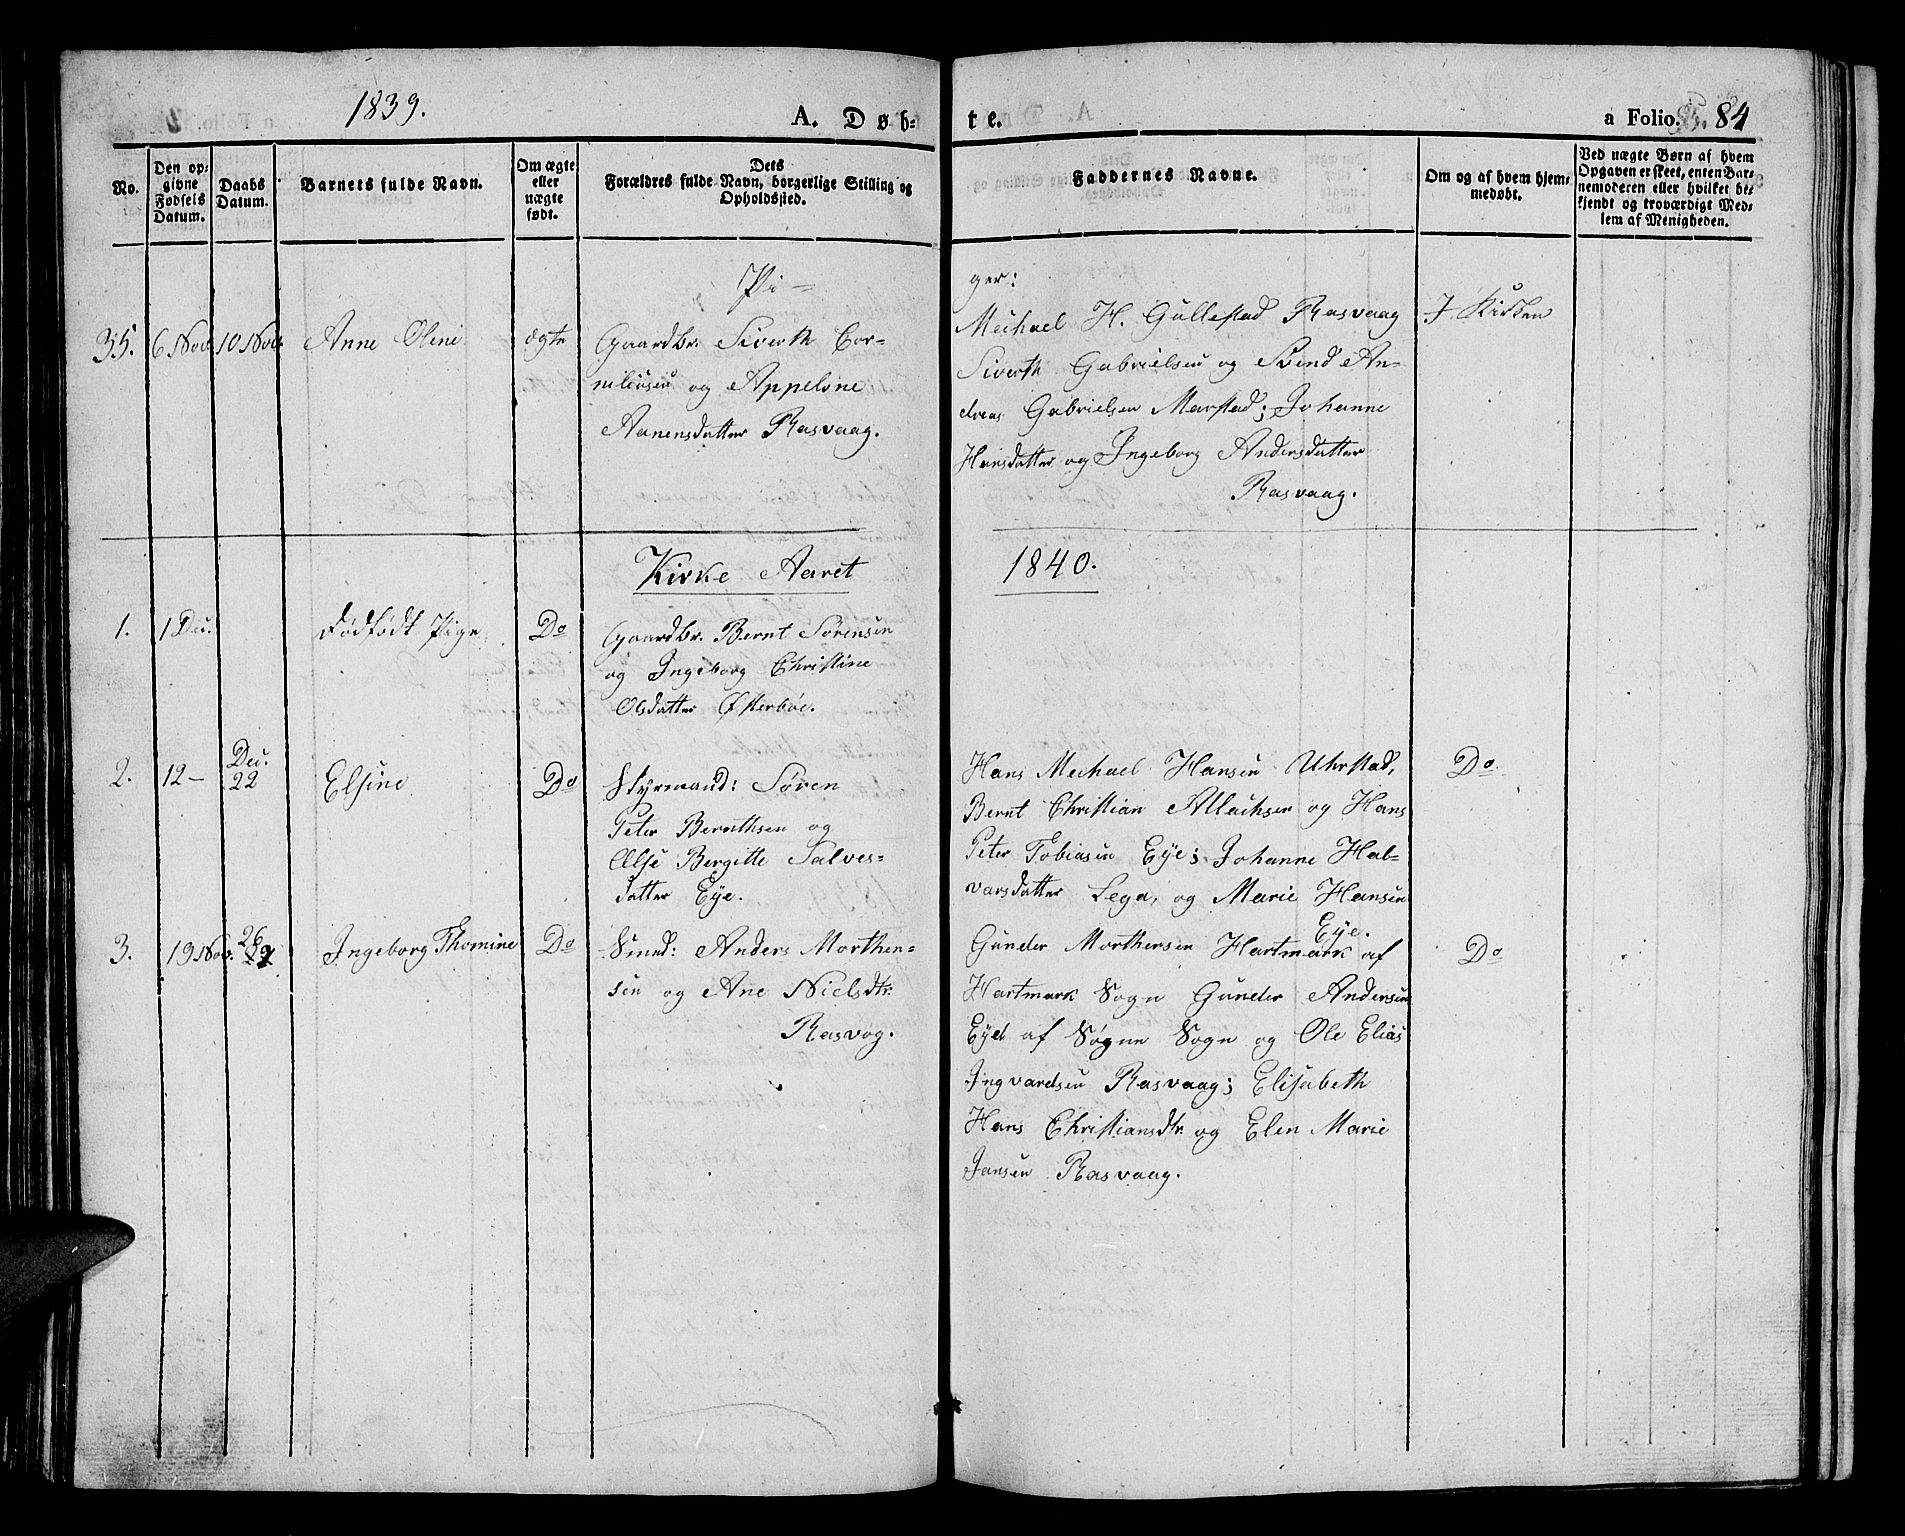 1839.
A. Døb-
te.
a Folio. 84
No.
Den op-
givne
Fødsels
Datum.
Daabs
Datum.
Barnets fulde Navn.
Om ægte
eller
uægte
født.
Dets
Forældres fulde Navn, borgerlige Stilling og
Opholdssted.
Faddernes Navne.
Om og af hvem hjem-
medøbt.
Ved uægte Børn af hvem
Opgaven er skeet, enten Bar-
nemoderen eller hvilket be-
kjendt og troværdigt Med-
lem af Menigheden.
Pi-
ger:
35. 6 Nov. 10 Nov. Anne Oline ægte
Gaardbr. Siverth Cor-
nilíusen og Appelone
Aanensdatter Rasvaag.
Michael H. Gullestad Rasvaag
Siverth Gabrielsen og Svend An-
dreas Gabrielsen Marstad; Johanne
Hansdatter og Ingeborg Andersdatter
Rasvaag.
I Kirken
Kirke Aaret
1840.
1. 1 Dec. Dødfødt Pige Do
Gaardbr. Bernt Sørensen
og Ingeborg Christine
Olsdatter Østerbøe.
2. 12- Dec. 22 Elsine Do
Styrmand: Søren
Peter Bernthsen og
Else Bergitte Salves-
datter Eye.
Hans Michael Hansen Uhrstad,
Bernt Christian Allachsen og Hans
Peter Tobiasen Eye; Johanne Hal-
varsdatter Lega, og Marie Hansen
Eye.
Do
3. 19 Nov. 26 Ingeborg Thomine Do
Smed: Anders Morthen-
sen og Ane Nielsdtr.
Rasvog.
Gunder Morthensen Hartmark af
Hartmark Sogn Gunder Andersen
Eyd af Søgne Sogn og Ole Elias
Ingvardsen Rasvaag; Elisabeth
Hans Christiansdtr. og Elen Marie
Jansen Rasvaag.
Do